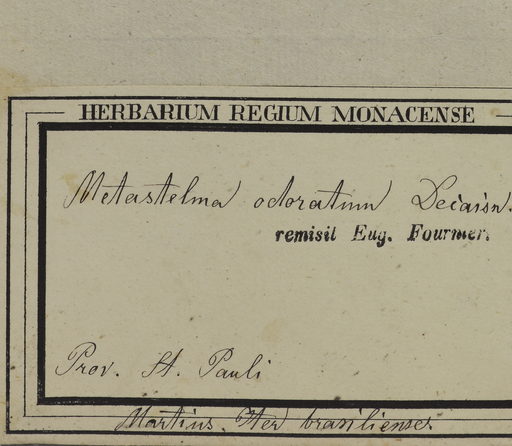 HERBARIUM REGIUM MONACENSE
Metastelma odoratum Decaisn.
remisit Eug. Fournier.
Prov. St. Pauli
Martius. Iter brasilienses